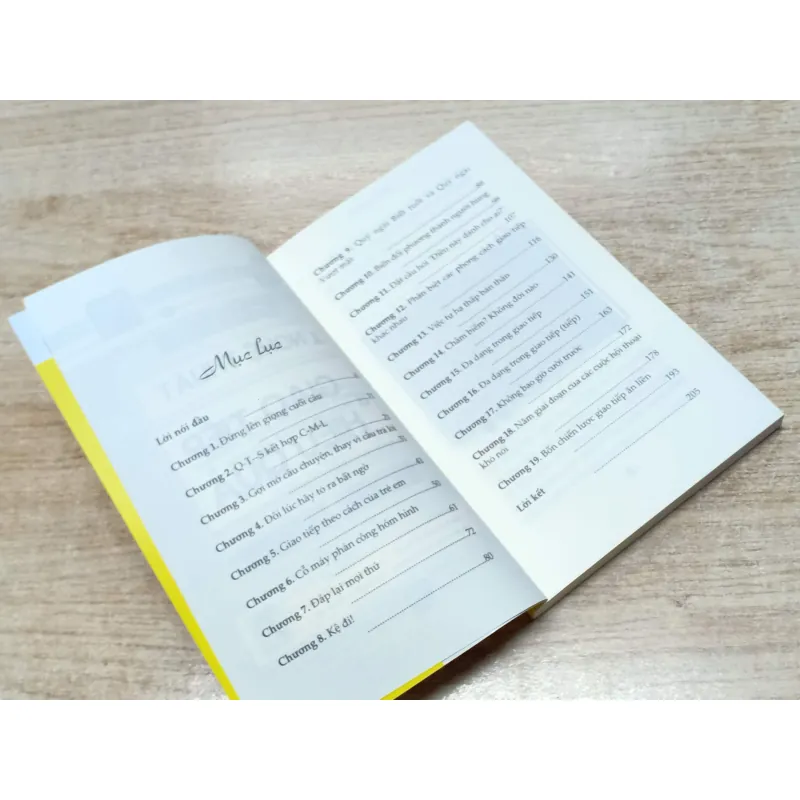 Mục lục
Lời nói đầu
Chương 1. Đừng lên giọng cuối câu
Chương 2. Q-T-S kết hợp C-M-L
Chương 3. Gợi mở câu chuyện, thay vì câu trả lời
Chương 4. Đôi lúc hãy tỏ ra bất ngờ
41
Chương 5. Giao tiếp theo cách của trẻ em
50
Chương 6. Cỗ máy phản công hóm hỉnh
61
Chương 7. Đáp lại mọi thứ
72
Chương 8. Kệ đi!
80
Chương 9. Quý ngài Biết tuốt và Quý ngài
Vượt mặt
88
Chương 10. Biến đối phương thành người hùng
98
Chương 11. Đặt câu hỏi 'Điều này dành cho ai?'
107
Chương 12. Phân biệt các phong cách giao tiếp
khác nhau
116
Chương 13. Việc tự hạ thấp bản thân
130
Chương 14. Châm biếm? Không đời nào
141
Chương 15. Đa dạng trong giao tiếp
151
Chương 16. Đa dạng trong giao tiếp (tiếp)
163
Chương 17. Không bao giờ cười trước
172
Chương 18. Năm giai đoạn của các cuộc hội thoại
khó nói
178
Chương 19. Bốn chiến lược giao tiếp ăn liền
193
Lời kết
205